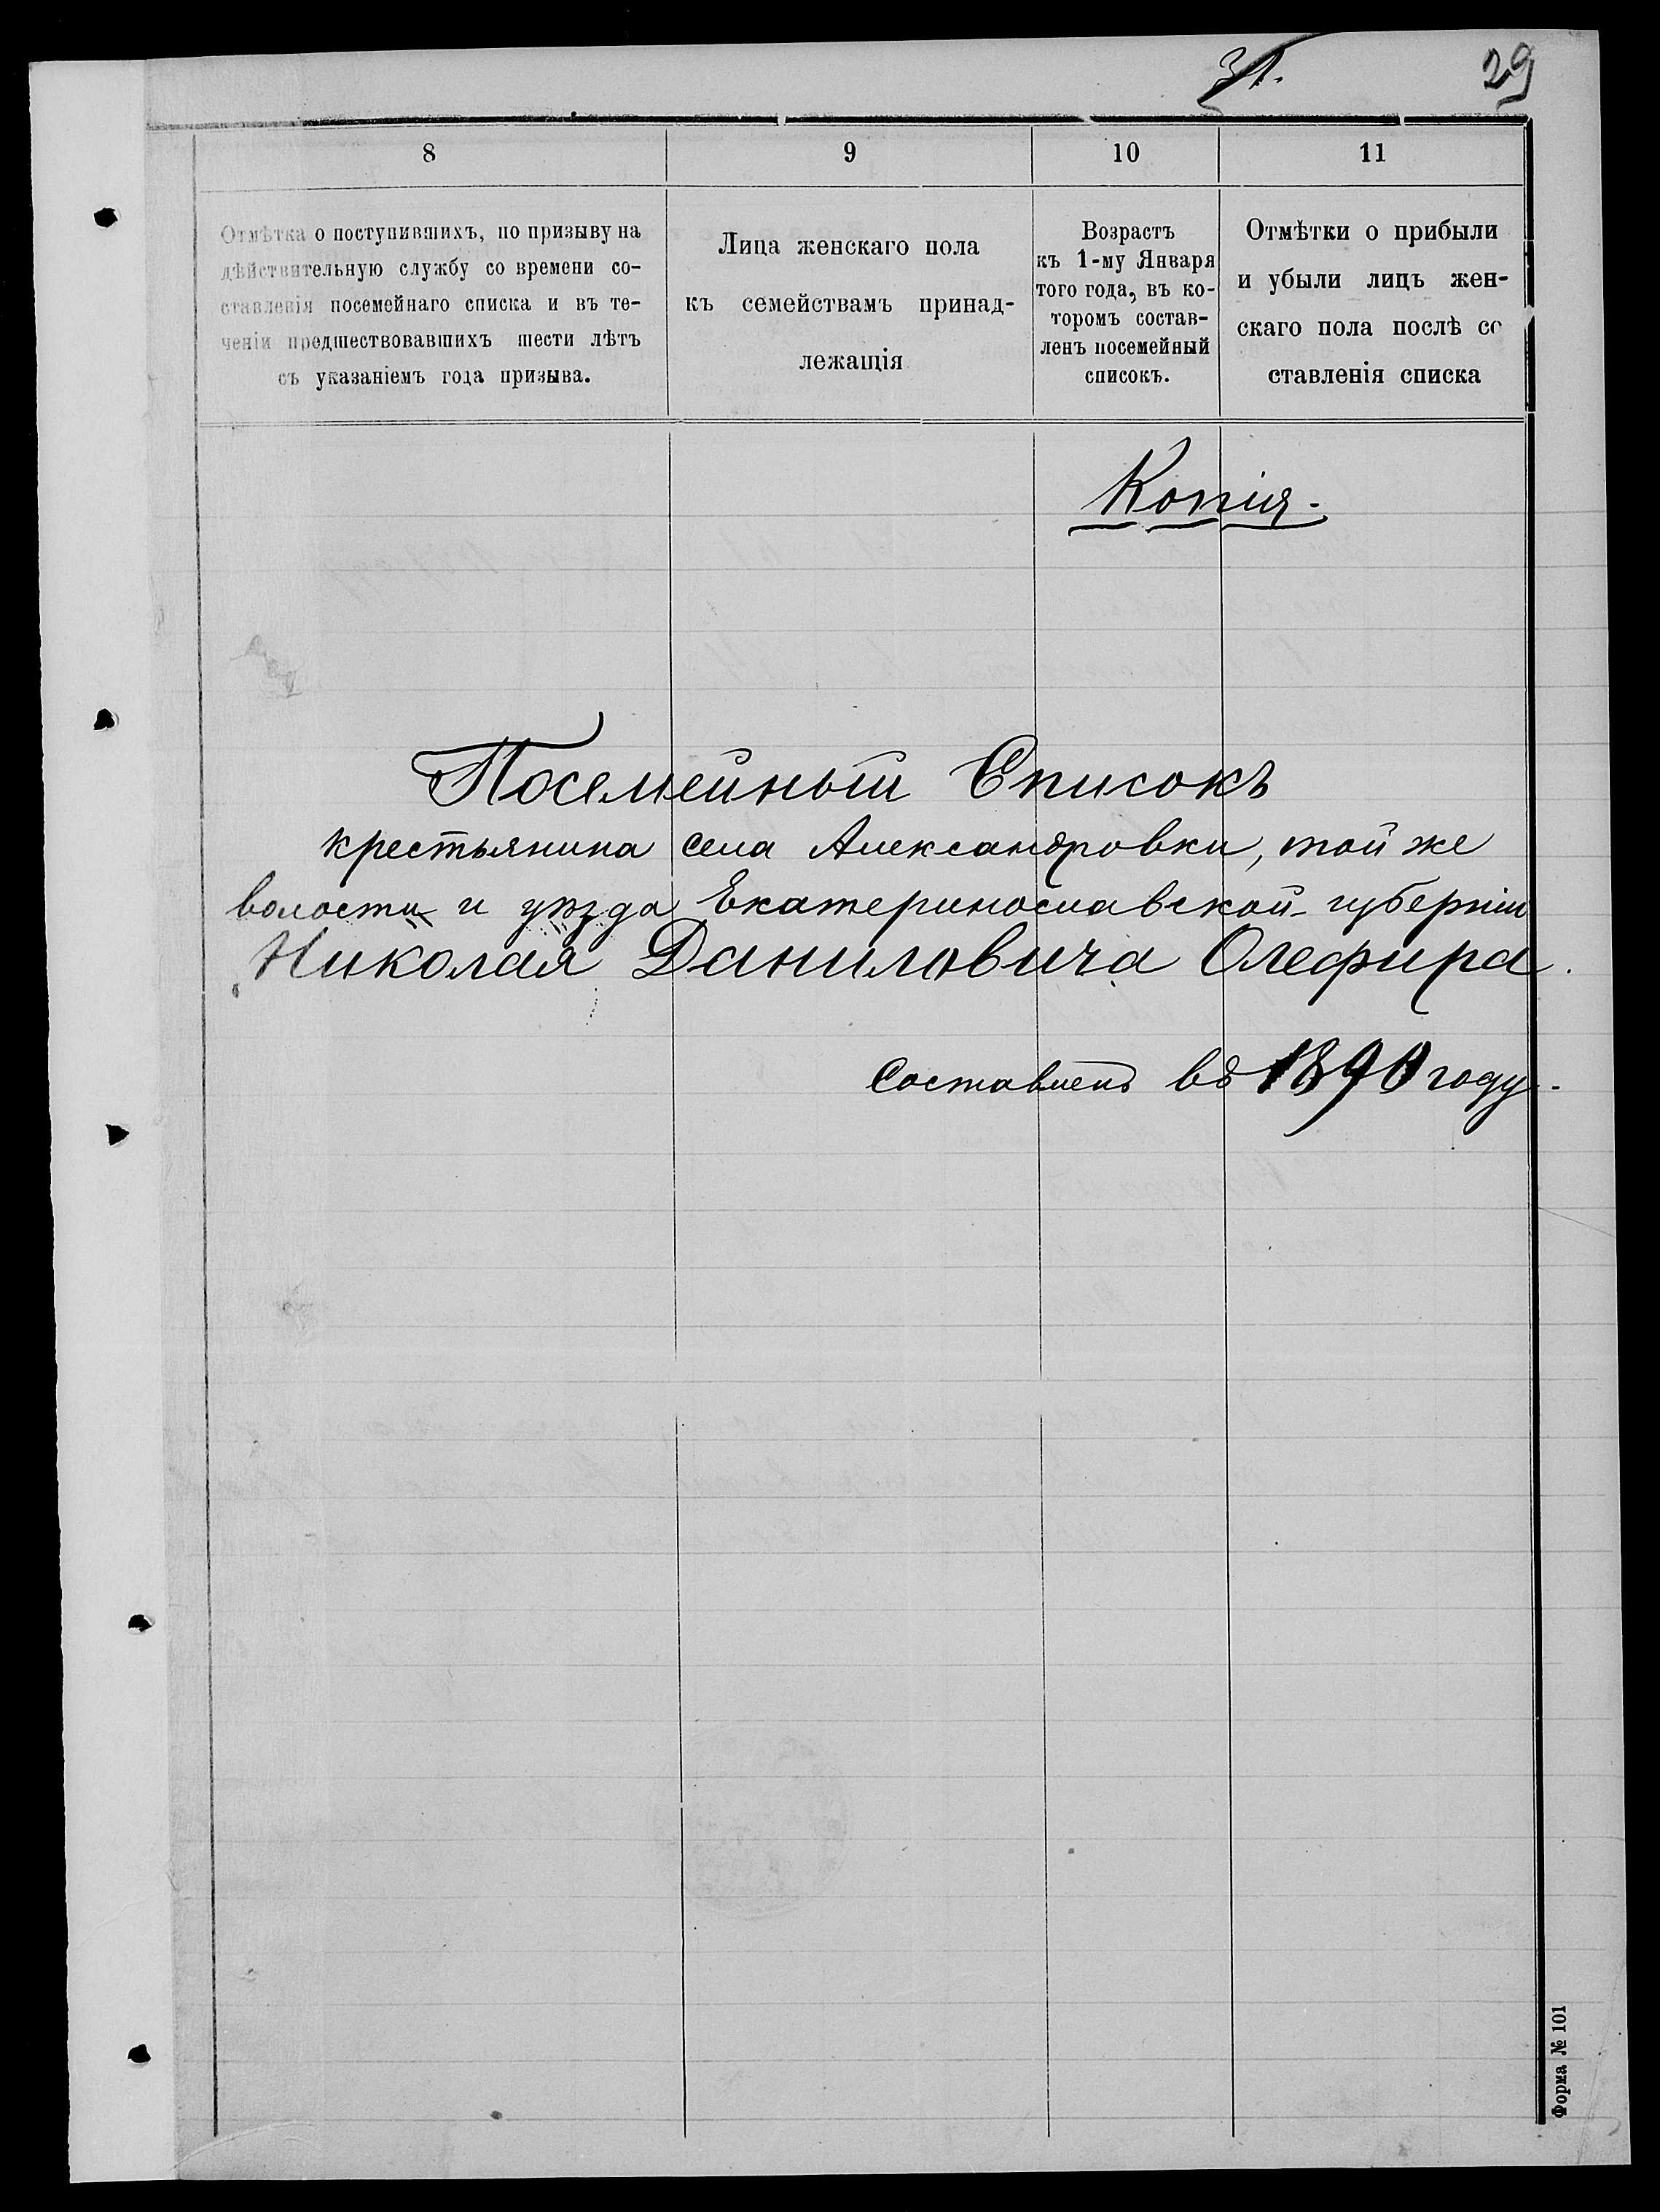 31.
29
8
9
10
11
Отмѣтка о поступившихъ, по призыву на
дѣйствительную службу со времени со-
ставленія посемейнаго списка и въ те-
ченіи предшествовавшихъ шести лѣтъ
съ указаніемъ года призыва.
Лица женскаго пола
къ семействамъ принад-
лежащія
Возрастъ
къ 1-му Января
того года, въ ко-
торомъ состав-
ленъ посемейный
списокъ.
Отмѣтки о прибыли
и убыли лицъ жен-
скаго пола послѣ со
ставленія списка
Копія.
Посемейный Списокъ
крестьянина села Александровки, той же
волости и уѣзда Екатеринославской губерніи
Николая Даниловича Олефира.
Составленъ въ 1890 году.
Форма № 101